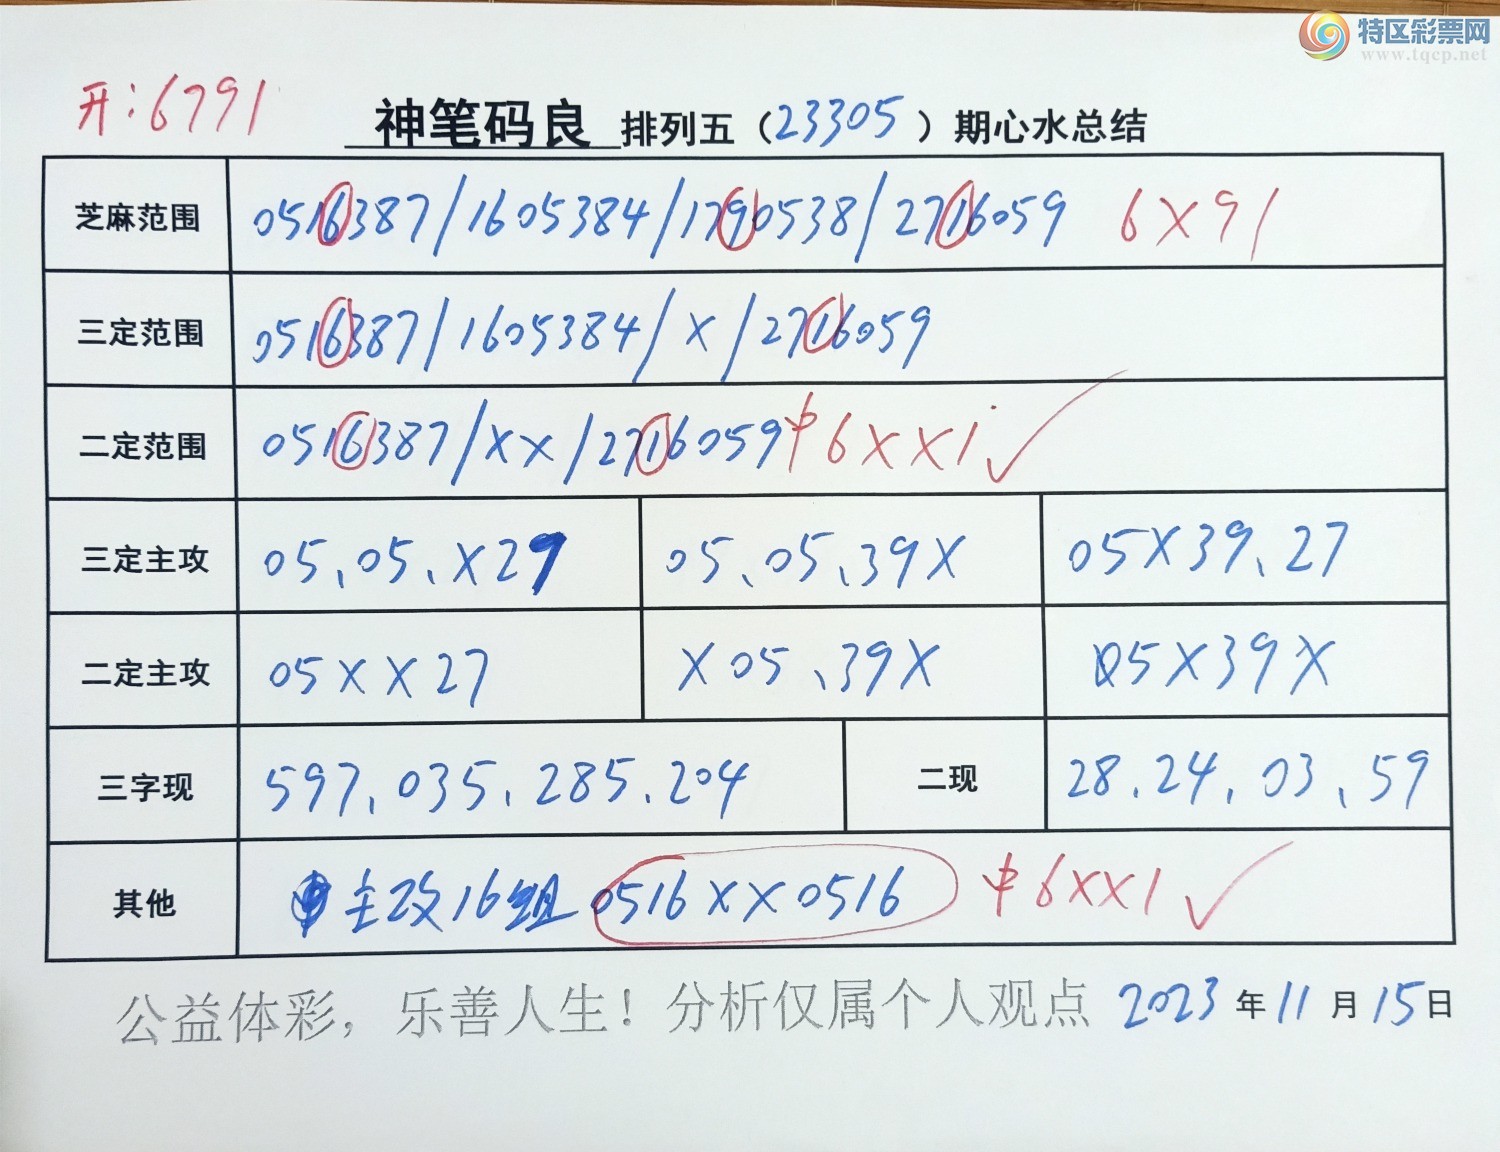 特区彩票网
www.tqcp.net
开:6791
神笔码良 排列五（23305）期心水总结
芝麻范围 0516387/1605384/1790538/2716059 6X91
三定范围 0516387/1605384/X/2716059
二定范围 0516387/XX/2716059中6XX1
三定主攻 05、05、X29 05、05、39X 05X39、27
二定主攻 05XX27 X05、39X 05X39X
三字现 597、035、285、204 二现 28、24、03、59
其他 主攻16组 0516XX0516 中6XX1
公益体彩，乐善人生！分析仅属个人观点 2023年11月15日